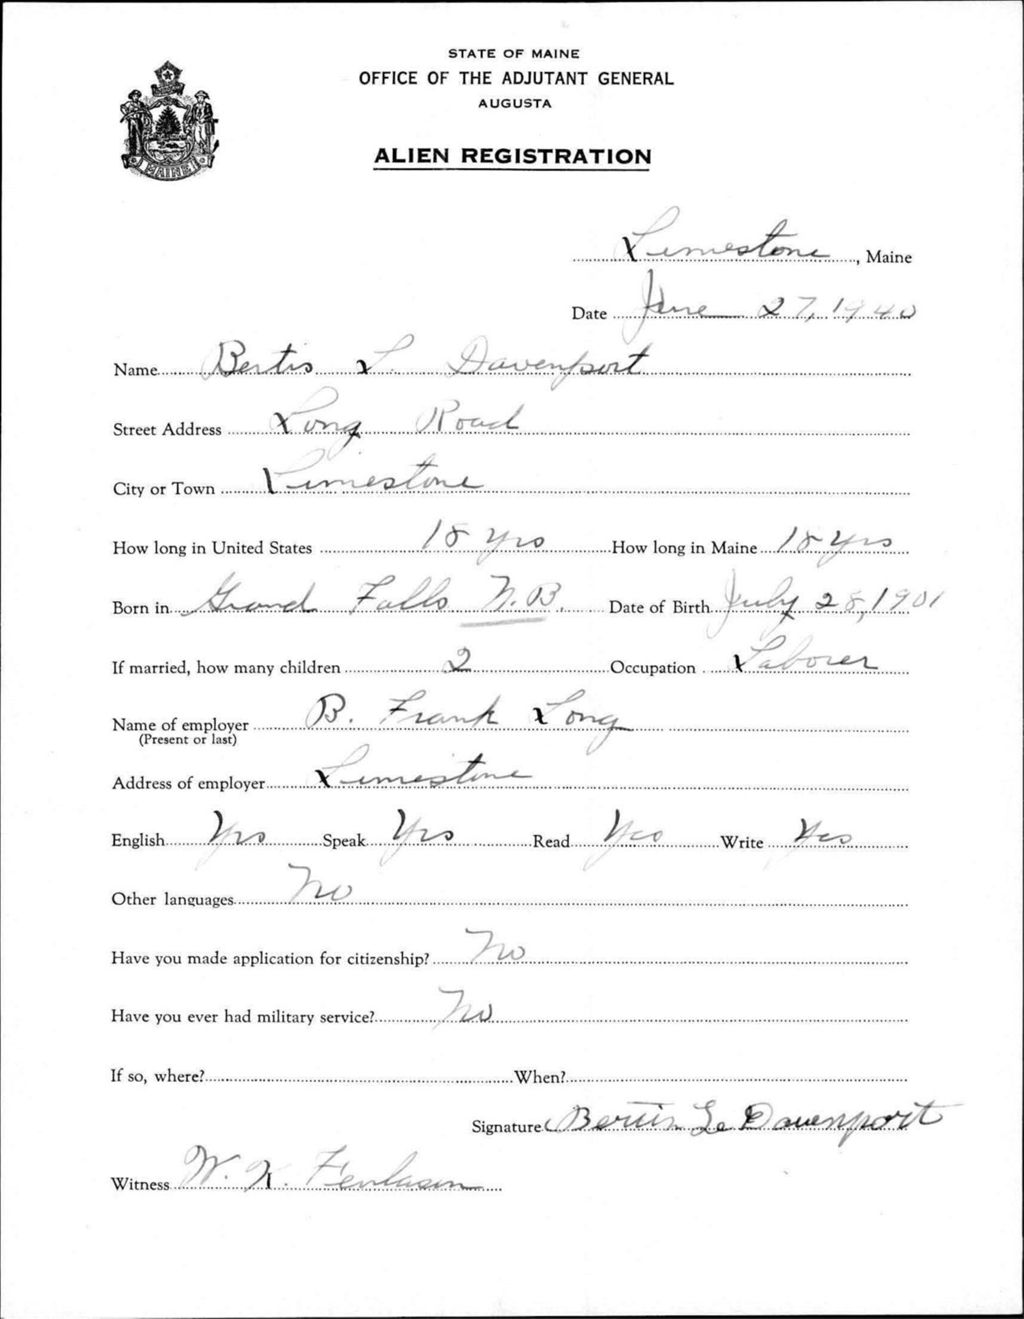 STATE OF MAINE
OFFICE OF THE ADJUTANT GENERAL
AUGUSTA
MAINE
ALIEN REGISTRATION
Limestone, Maine
Date June 27, 1940
Name Bertis L. Davenport
Street Address Long Road
City or Town Limestone
How long in United States 18 yrs How long in Maine 18 yrs
Born in Grand Falls N.B. Date of Birth July 28, 1901
If married, how many children 2 Occupation Laborer
Name of employer B. Frank Long
(Present or last)
Address of employer Limestone
English Yes Speak Yes Read Yes Write Yes
Other languages No
Have you made application for citizenship? No
Have you ever had military service? No
If so, where? When?
Signature Davenport
Witness W. K.